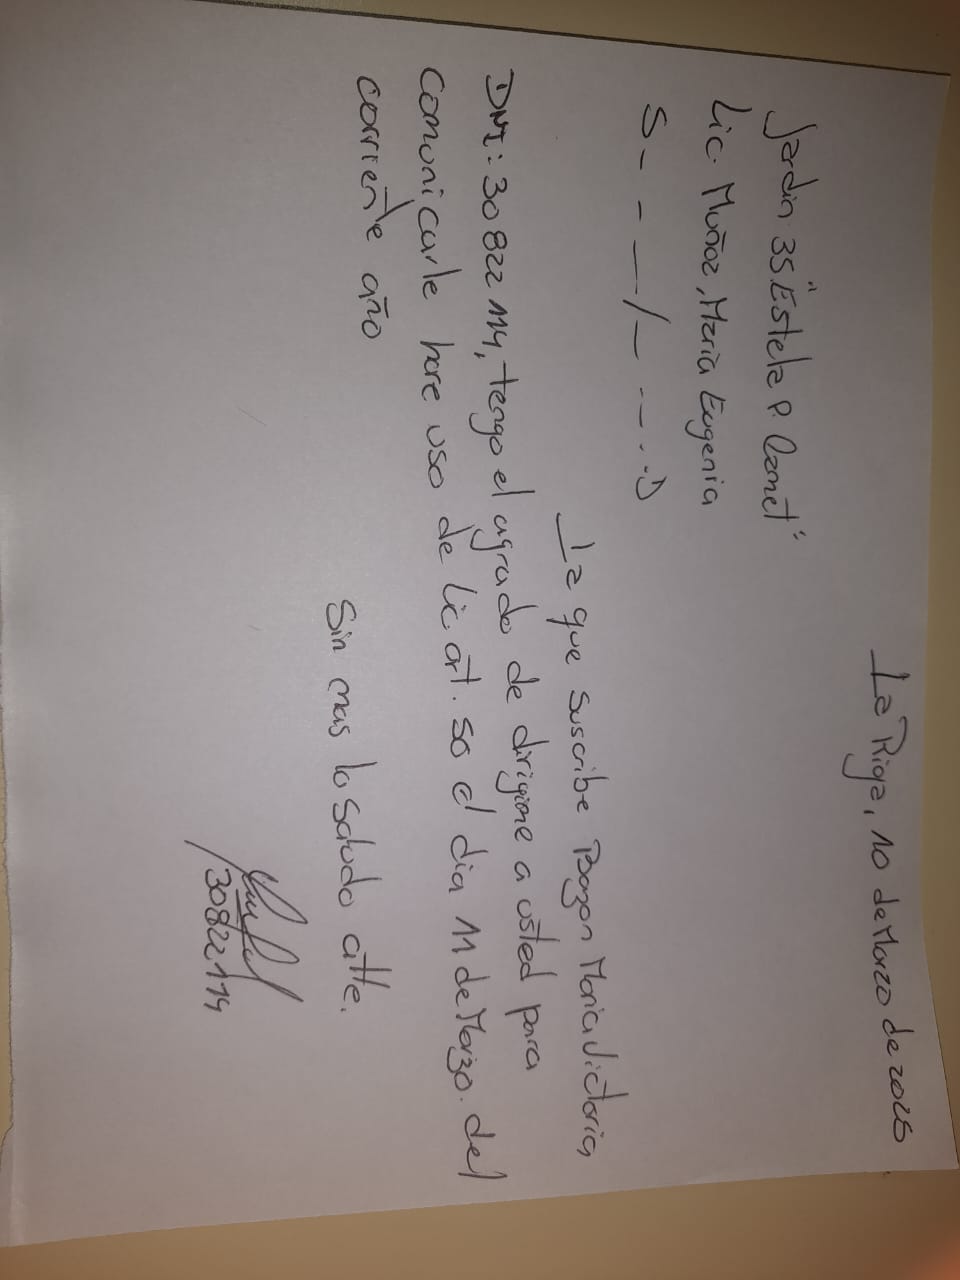 La Rioja, 10 de Marzo de 2026
Jardin 35 "Estela P. Carnet"
Lic. Muñoz, Maria Eugenia
S_ _ __/_ _ _ . :D
La que suscribe Bazan Maria Victoria,
DNI: 30822114, tengo el agrado de dirigirme a usted para
comunicarle hare uso de Lic art. 50 el dia 11 de Marzo. del
corriente año
Sin mas lo saludo atte.
30822114